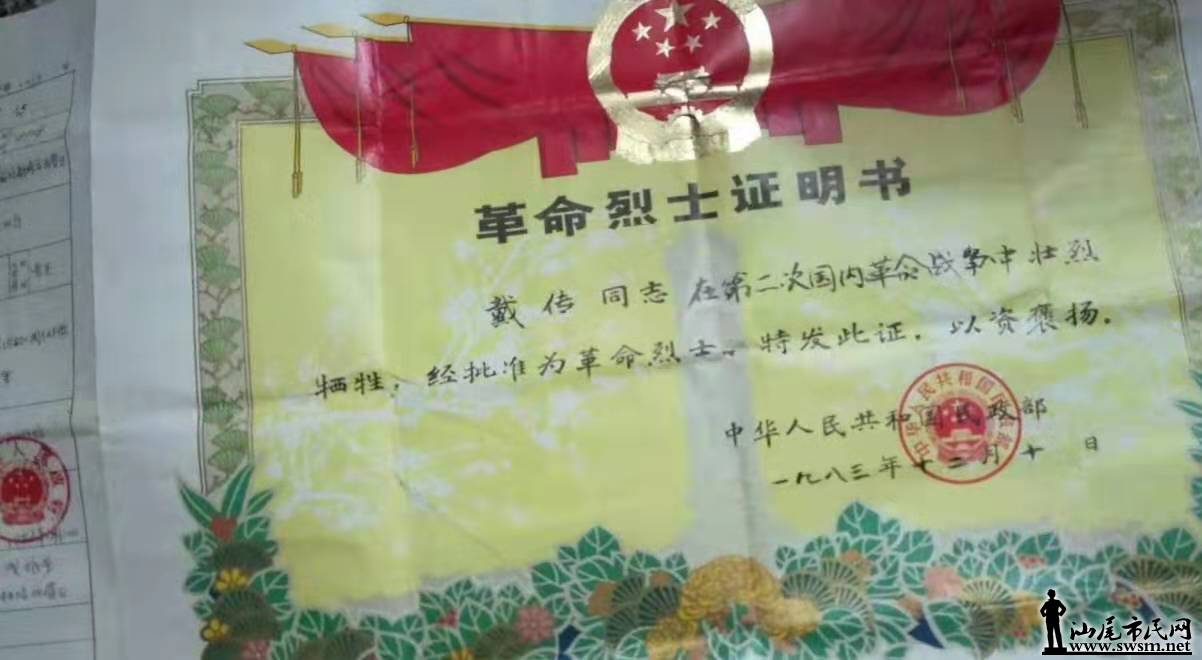 革命烈士证明书
戴传同志在第二次国内革命战争中壮烈
牺牲，经批准为革命烈士。特发此证，以资褒扬。
中华人民共和国民政部
一九八三年十二月十日
汕尾市民网
www.swsm.net